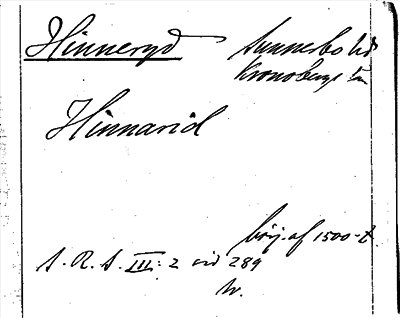 Hinneryd Sunnerbo hd
Kronobergs län
Hinnarid
börj. af 1500-t
S. R. S. III: 2 sid 289